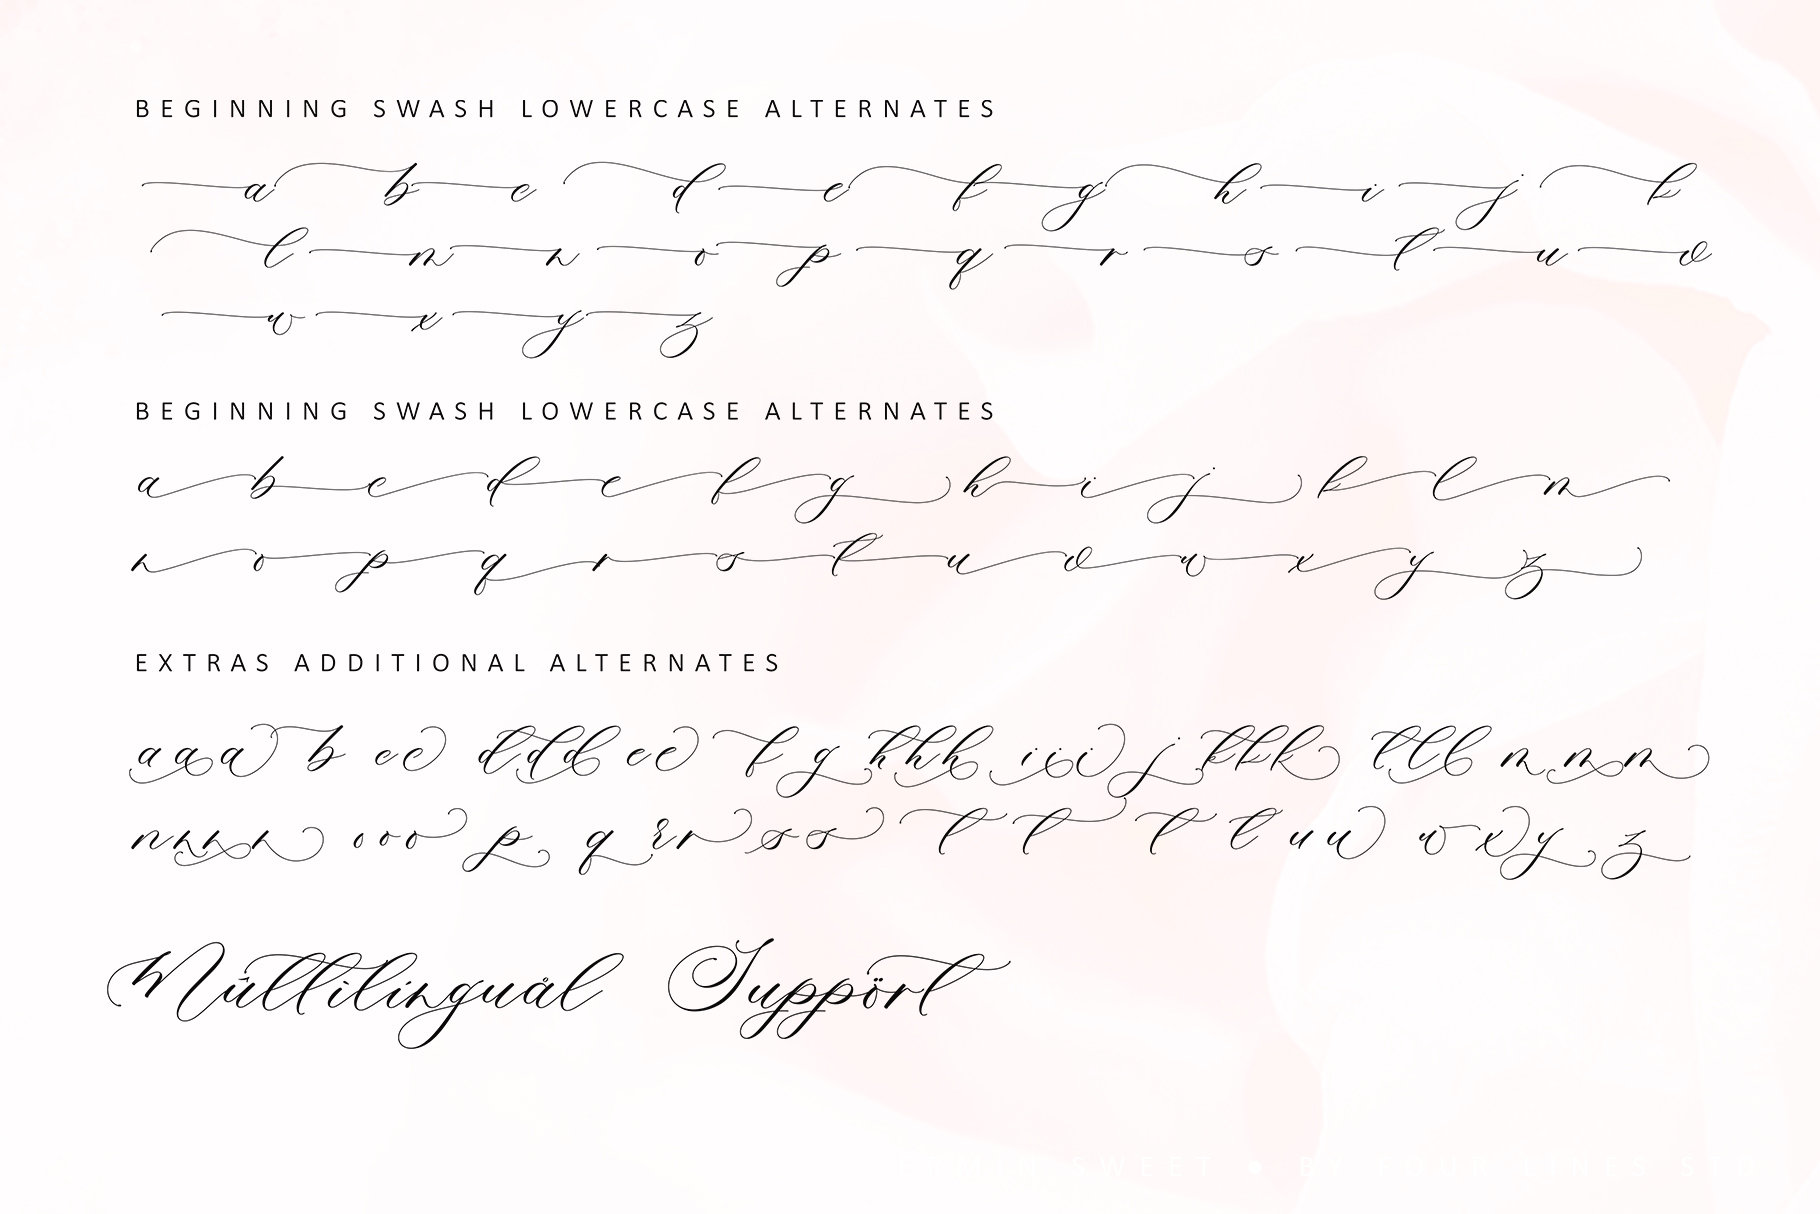 BEGINNING SWASH LOWERCASE ALTERNATES
a b c d e f g h i j k
l m n o p q r s t u v
w x y z
BEGINNING SWASH LOWERCASE ALTERNATES
a b c d e f g h i j k l m
n o p q r s t u v w x y z
EXTRAS ADDITIONAL ALTERNATES
a a a b c c d d d e e f g h h h i i i j k k k l l l m m m
n n n n o o o p q r r s s t t t t u u w x y z
Mûltilinguål Suppört
SWEET • BY FOUR LINES STD